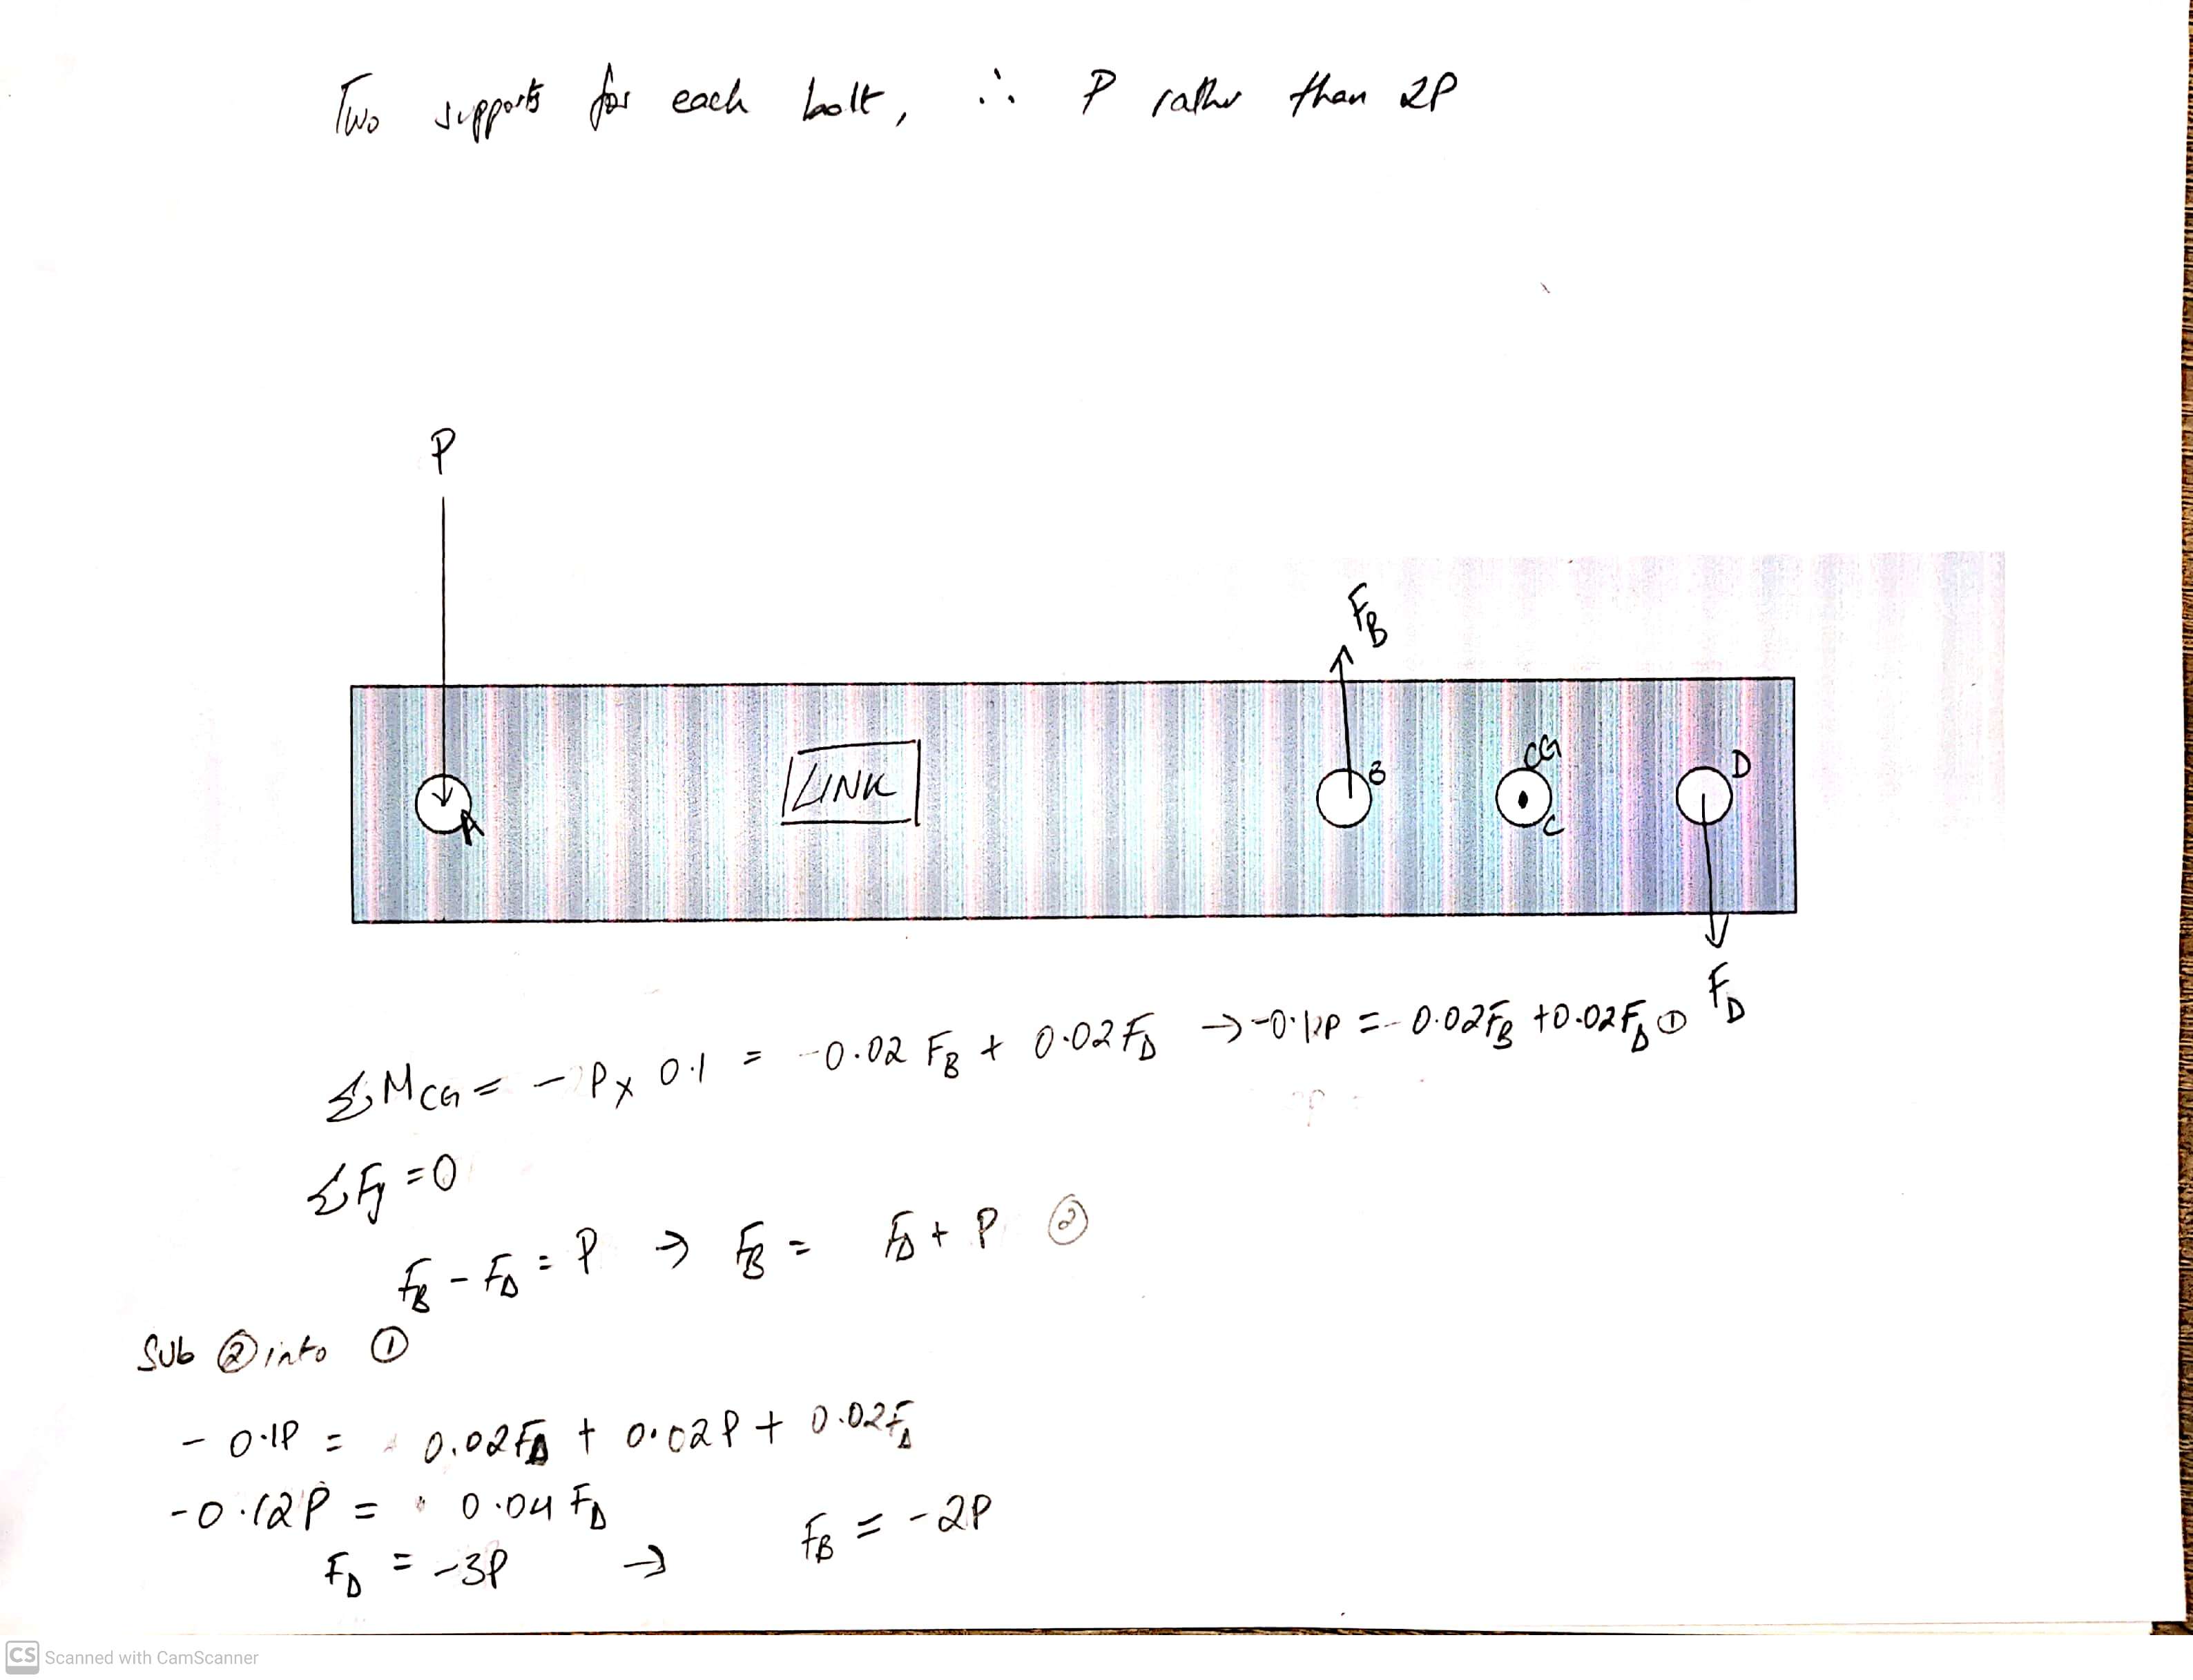 Two supports for each bolt, ∴ P rather than 2P
P
F_B
LINK
A
B
CG
C
D
F_D
ΣM_CG = - P x 0.1 = -0.02 F_B + 0.02 F_D → -0.1P = -0.02F_B + 0.02F_D ①
ΣFy = 0
F_B - F_D = P → F_B = F_D + P ②
Sub ② into ①
- 0.1P = 0.02F_D + 0.02P + 0.02F_D
-0.12P = 0.04 F_D
F_D = -3P → F_B = -2P
CS Scanned with CamScanner